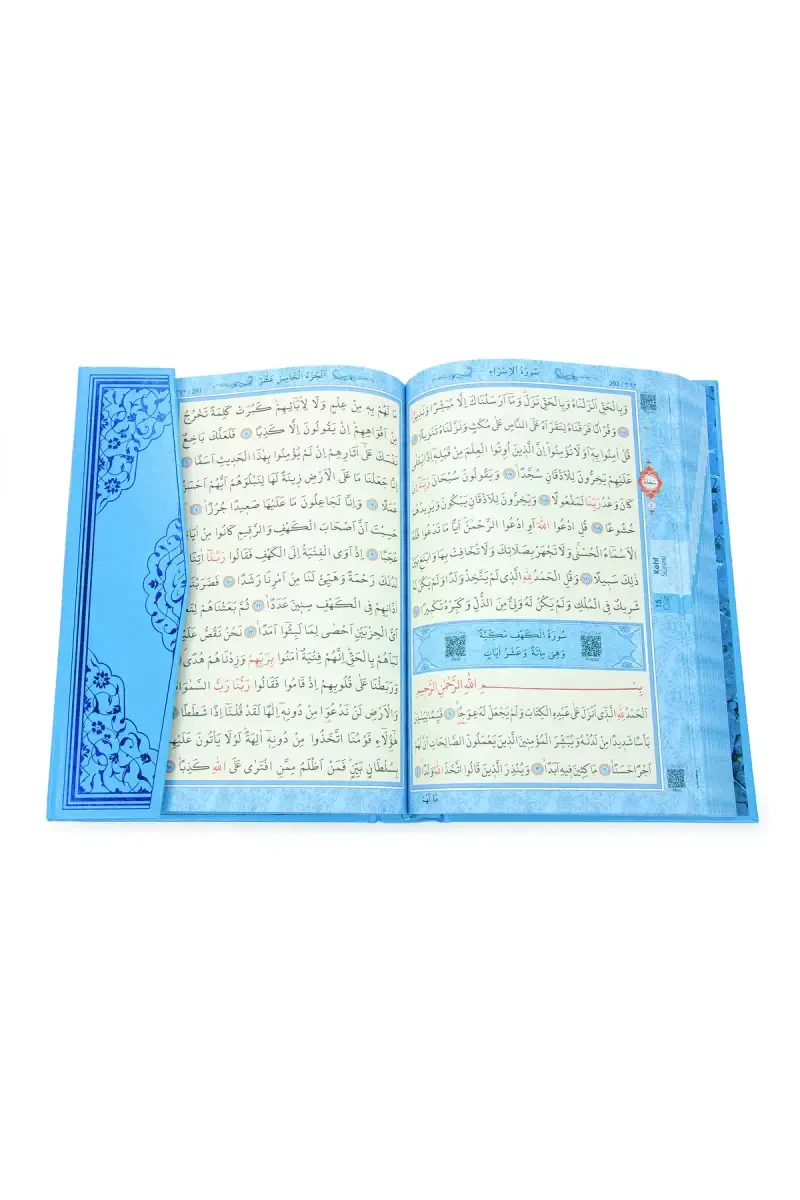 سُورَةُ الْاِسْرَاءِ
292 / ٢٩٢
وَبِالْحَقِّ اَنْزَلْنَاهُ وَبِالْحَقِّ نَزَلَ وَمَٓا اَرْسَلْنَاكَ اِلَّا مُبَشِّرًا وَنَذ۪يرًا
وَقُرْاٰنًا فَرَقْنَاهُ لِتَقْرَاَهُ عَلَى النَّاسِ عَلٰى مُكْثٍ وَنَزَّلْنَاهُ تَنْز۪يلًا
قُلْ اٰمِنُوا بِه۪ٓ اَوْ لَا تُؤْمِنُوا اِنَّ الَّذ۪ينَ اُو۫تُوا الْعِلْمَ مِنْ قَبْلِه۪ٓ اِذَا يُتْلٰى
عَلَيْهِمْ يَخِرُّونَ لِلْاَذْقَانِ سُجَّدًا ﴿١٠٧﴾ وَيَقُولُونَ سُبْحَانَ رَبِّنَٓا اِنْ
كَانَ وَعْدُ رَبِّنَا لَمَفْعُولًا ﴿١٠٨﴾ وَيَخِرُّونَ لِلْاَذْقَانِ يَبْكُونَ وَيَز۪يدُهُمْ
خُشُوعًا ﴿١٠٩﴾ قُلِ ادْعُوا اللّٰهَ اَوِ ادْعُوا الرَّحْمٰنَ اَيًّا مَا تَدْعُوا فَلَهُ
الْاَسْمَٓاءُ الْحُسْنٰى وَلَا تَجْهَرْ بِصَلَاتِكَ وَلَا تُخَافِتْ بِهَا وَابْتَغِ بَيْنَ
ذٰلِكَ سَب۪يلًا ﴿١١٠﴾ وَقُلِ الْحَمْدُ لِلّٰهِ الَّذ۪ي لَمْ يَتَّخِذْ وَلَدًا وَلَمْ يَكُنْ لَهُ
شَر۪يكٌ فِي الْمُلْكِ وَلَمْ يَكُنْ لَهُ وَلِيٌّ مِنَ الذُّلِّ وَكَبِّرْهُ تَكْب۪يرًا
سُورَةُ الْكَهْفِ مَكِّيَّةٌ
وَهِيَ مِائَةٌ وَعَشْرُ اٰيَاتٍ
بِسْمِ اللّٰهِ الرَّحْمٰنِ الرَّح۪يمِ
اَلْحَمْدُ لِلّٰهِ الَّذ۪ٓي اَنْزَلَ عَلٰى عَبْدِهِ الْكِتَابَ وَلَمْ يَجْعَلْ لَهُ عِوَجًا ﴿١﴾ قَيِّمًا لِيُنْذِرَ
بَأْسًا شَد۪يدًا مِنْ لَدُنْهُ وَيُبَشِّرَ الْمُؤْمِن۪ينَ الَّذ۪ينَ يَعْمَلُونَ الصَّالِحَاتِ اَنَّ لَهُمْ
اَجْرًا حَسَنًا ﴿٢﴾ مَاكِث۪ينَ ف۪يهِ اَبَدًا ﴿٣﴾ وَيُنْذِرَ الَّذ۪ينَ قَالُوا اتَّخَذَ اللّٰهُ وَلَدًا
مَا لَهُمْ
سَجْدَة
Kehf
Suresi
15
Cüz
اَلْجُزْءُ الْخَامِسُ عَشَرَ
٢٩٣ / 293
مَا لَهُمْ بِه۪ مِنْ عِلْمٍ وَلَا لِاٰبَٓائِهِمْ كَبُرَتْ كَلِمَةً تَخْرُجُ
مِنْ اَفْوَاهِهِمْ اِنْ يَقُولُونَ اِلَّا كَذِبًا ﴿٥﴾ فَلَعَلَّكَ بَاخِعٌ
نَفْسَكَ عَلٰٓى اٰثَارِهِمْ اِنْ لَمْ يُؤْمِنُوا بِهٰذَا الْحَد۪يثِ اَسَفًا
اِنَّا جَعَلْنَا مَا عَلَى الْاَرْضِ ز۪ينَةً لَهَا لِنَبْلُوَهُمْ اَيُّهُمْ اَحْسَنُ
عَمَلًا ﴿٧﴾ وَاِنَّا لَجَاعِلُونَ مَا عَلَيْهَا صَع۪يدًا جُرُزًا ﴿٨﴾ اَمْ
حَسِبْتَ اَنَّ اَصْحَابَ الْكَهْفِ وَالرَّق۪يمِ كَانُوا مِنْ اٰيَاتِنَا
عَجَبًا ﴿٩﴾ اِذْ اَوَى الْفِتْيَةُ اِلَى الْكَهْفِ فَقَالُوا رَبَّنَٓا اٰتِنَا
مِنْ لَدُنْكَ رَحْمَةً وَهَيِّئْ لَنَا مِنْ اَمْرِنَا رَشَدًا ﴿١٠﴾ فَضَرَبْنَا
اٰذَانِهِمْ فِي الْكَهْفِ سِن۪ينَ عَدَدًا ﴿١١﴾ ثُمَّ بَعَثْنَاهُمْ لِنَعْلَمَ
اَيُّ الْحِزْبَيْنِ اَحْصٰى لِمَا لَبِثُٓوا اَمَدًا ﴿١٢﴾ نَحْنُ نَقُصُّ عَلَيْكَ
نَبَاَهُمْ بِالْحَقِّ اِنَّهُمْ فِتْيَةٌ اٰمَنُوا بِرَبِّهِمْ وَزِدْنَاهُمْ هُدًى
وَرَبَطْنَا عَلٰى قُلُوبِهِمْ اِذْ قَامُوا فَقَالُوا رَبُّنَا رَبُّ السَّمٰوَاتِ
وَالْاَرْضِ لَنْ نَدْعُوَا۬ مِنْ دُونِه۪ٓ اِلٰهًا لَقَدْ قُلْنَٓا اِذًا شَطَطًا
هٰٓؤُ۬لَٓاءِ قَوْمُنَا اتَّخَذُوا مِنْ دُونِه۪ٓ اٰلِهَةً لَوْلَا يَأْتُونَ عَلَيْهِمْ
بِسُلْطَانٍ بَيِّنٍ فَمَنْ اَظْلَمُ مِمَّنِ افْتَرٰى عَلَى اللّٰهِ كَذِبًا